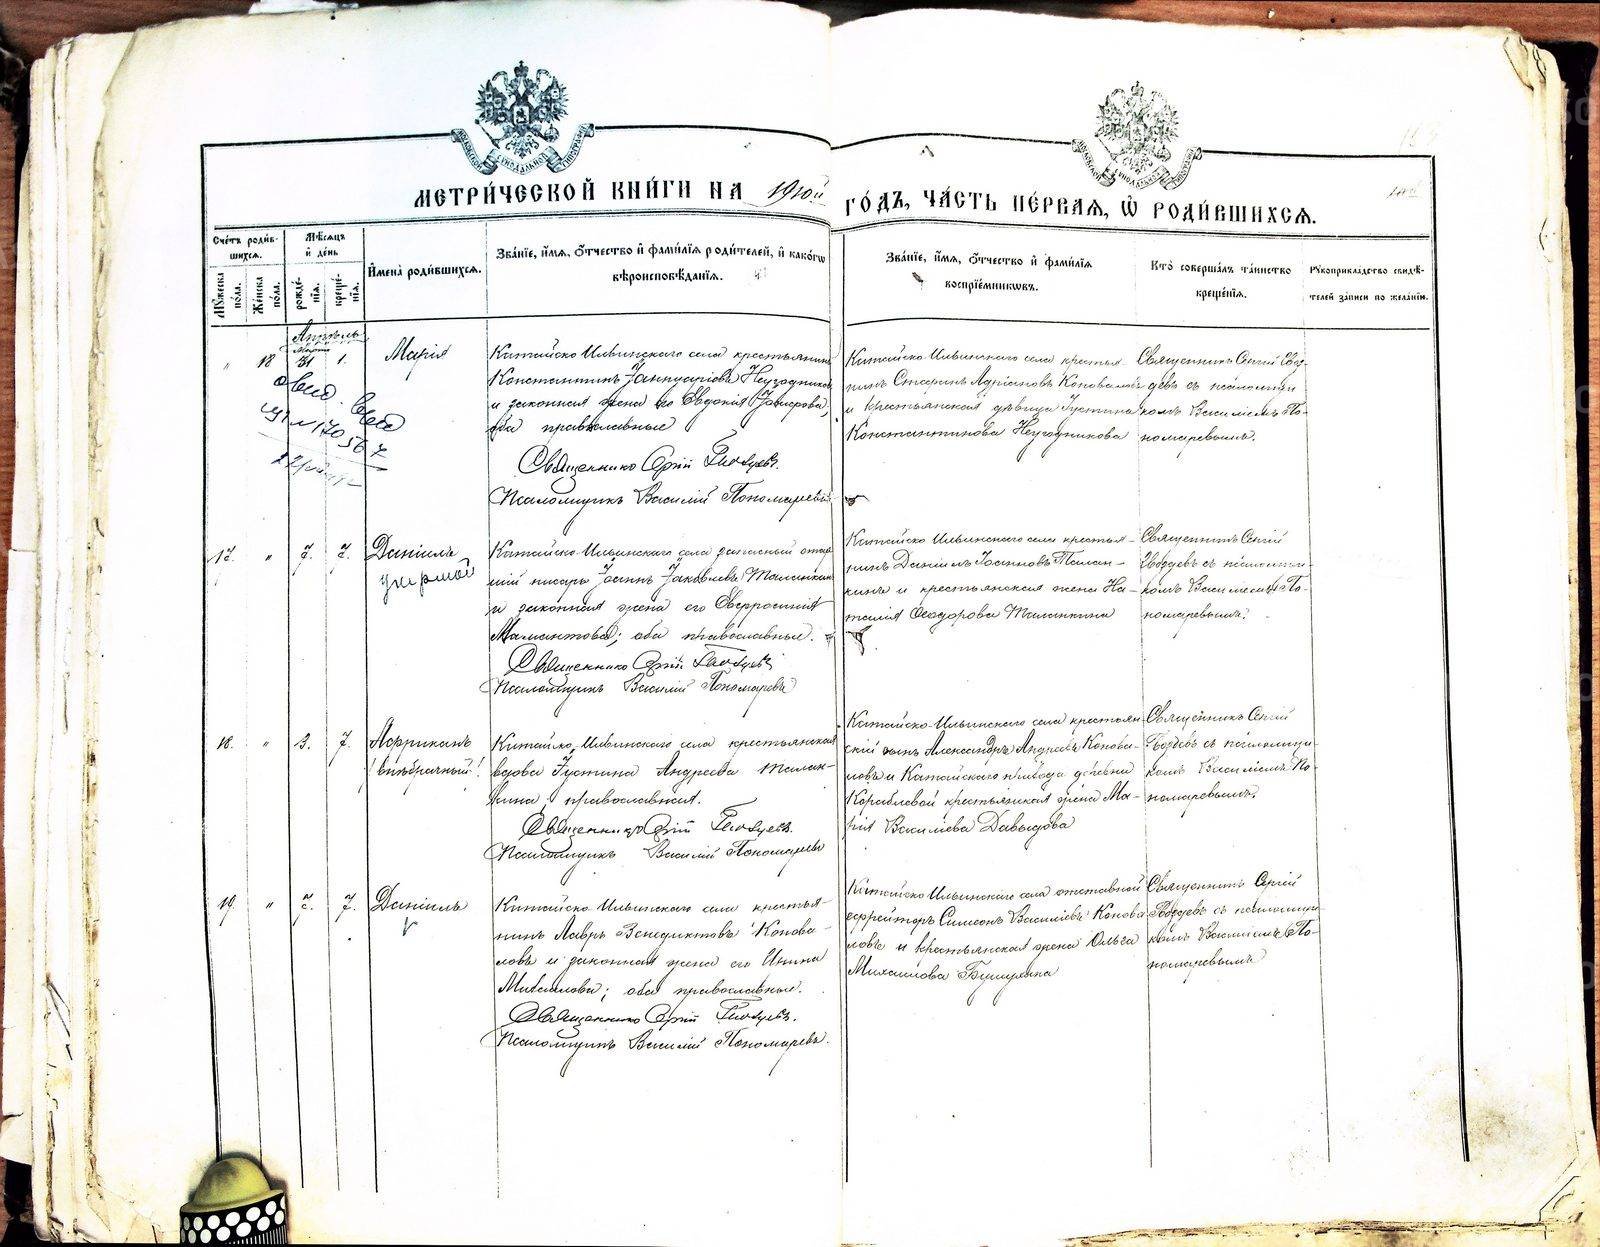 МЕТРИ́ЧЕСКОЙ КНИ́ГИ НА 1910й ГО́ДЪ, ЧА́СТЬ ПЕ́РВАЯ, Ѽ РОДИ́ВШИХСѦ.
Сче́тъ роди́в-
шихсѧ.
Мꙋ́жеска по́ла.
Же́нска по́ла.
Мѣ́сѧцъ и҆ де́нь
рожде́нїѧ.
креще́нїѧ.
И҆мена̀ роди́вшихсѧ.
Зва́нїе, и҆́мѧ, о҆́тчество и҆ фами́лїѧ роди́телей, и҆ како́гѡ
вѣроисповѣ́данїѧ.
Зва́нїе, и҆́мѧ, о҆́тчество и҆ фами́лїѧ
воспрїе́мникѡвъ.
Кто̀ соверша́лъ та́инство
креще́нїѧ.
Рꙋкоприкла́дство свидѣ́-
телей за́писи по жела́нїю.
Апрѣль
Марта
" 18 31 1. Марія
Китайско Ильинскаго села крестьянинъ
Константинъ Іаннуаріевъ Неугодниковъ
и законная жена его Евдокія
оба православные
Священникъ Сергій Гвоздевъ.
Псаломщикъ Василій Пономаревъ
Китайско Ильинскаго села крестья-
нинъ Адріановъ Коноваловъ
и крестьянская дѣвица Іустина
Константинова Неугодникова
Священникъ Сергій Гвоз-
девъ съ псаломщи
комъ Василіемъ По-
номаревымъ.
17. " 7. 7. Даніилъ
умерший
Китайско-Ильинскаго села запасный
писарь Іоаннъ Іаковлевъ Таланкинъ
и законная жена его Евфросинія
Мамантова; оба православные.
Священникъ Сергій Гвоздевъ
Псаломщикъ Василій Пономаревъ
Китайско Ильинскаго села крестья-
нинъ Даніилъ Іоанновъ Талан-
кинъ и крестьянская жена На-
талія Ѳеодорова Таланкина
Священникъ Сергій
Гвоздевъ съ псаломщи-
комъ Василіемъ По-
номаревымъ.
18. " 3. 7. Африканъ
(внѣбрачный).
Китайско Ильинскаго села крестьянская
вдова Іустина Андреева Талан-
кина; православная.
Священникъ Сергій Гвоздевъ.
Псаломщикъ Василій Пономаревъ
Китайско-Ильинскаго села крестьян-
скій сынъ Александръ Андреевъ Конова-
ловъ и Китайскаго прихода деревни
Кораблевой крестьянская жена Ма-
рія Василіева Давыдова
Священникъ Сергій
Гвоздевъ съ псаломщи-
комъ Василіемъ По-
номаревымъ.
19. " 7. 7. Даніилъ
Китайско Ильинскаго села крестья-
нинъ Лавръ Венедиктовъ Конова-
ловъ и законная жена его Анна
Михаилова; оба православные.
Священникъ Сергій Гвоздевъ.
Псаломщикъ Василій Пономаревъ.
Китайско Ильинскаго села отставной
ефрейторъ Симеонъ Василіевъ Конова
ловъ и крестьянская жена Ольга
Михаилова
Священникъ Сергій
Гвоздевъ съ псаломщи
комъ Василіемъ По-
номаревымъ